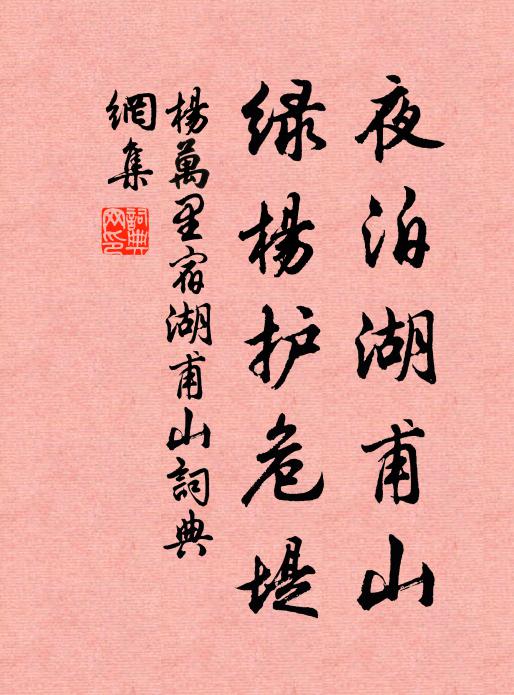 夜泊湖甫山
绿杨护危堤
楊萬里宿湖甫山詞典
網集
詞典
网印